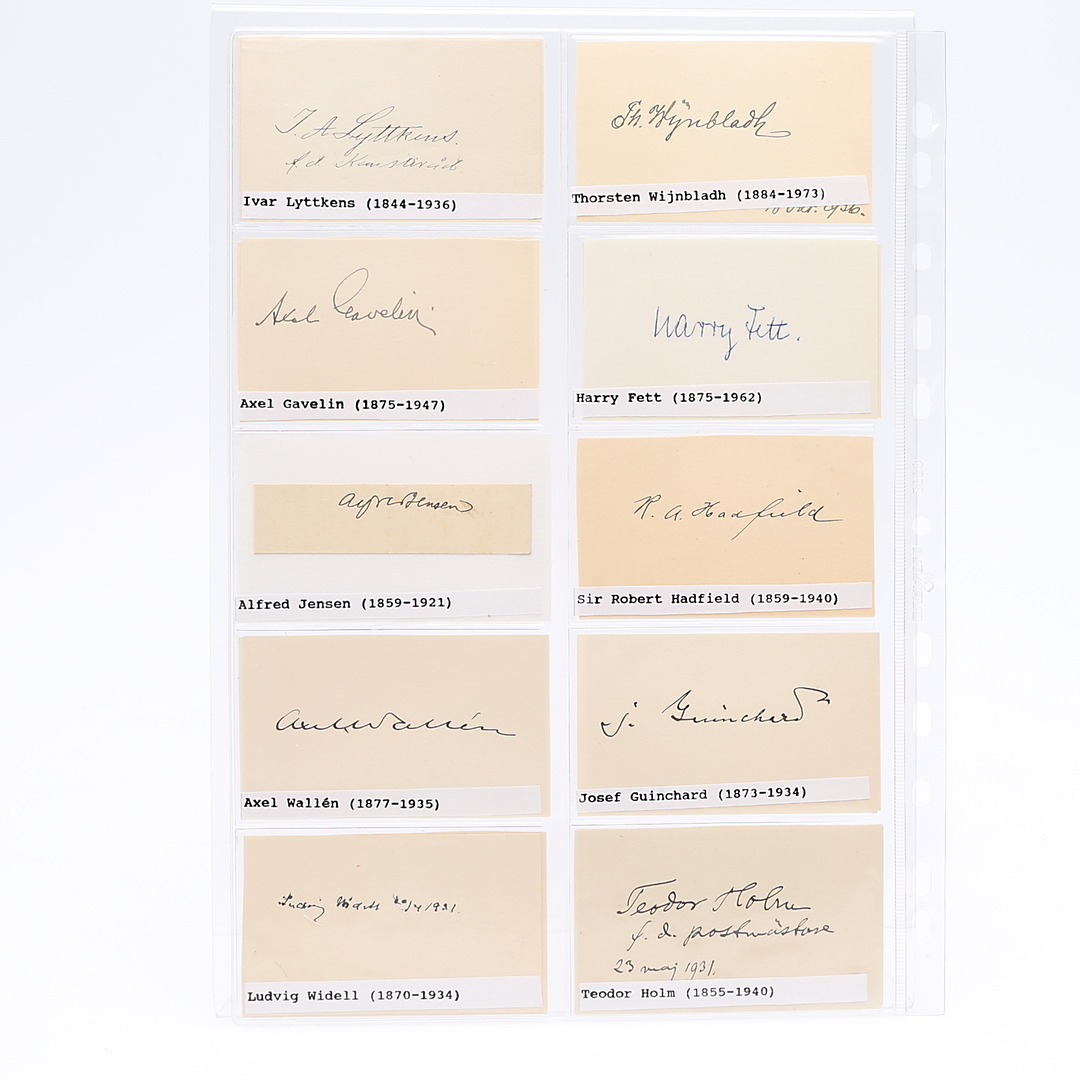 I. A. Lyttkens.
f. d. Kansliråd.
Ivar Lyttkens (1844-1936)
Th. Wijnbladh
1936.
Thorsten Wijnbladh (1884-1973)
Axel Gavelin.
Axel Gavelin (1875-1947)
Harry Fett.
Harry Fett (1875-1962)
Alfred Jensen
Alfred Jensen (1859-1921)
R. A. Hadfield
Sir Robert Hadfield (1859-1940)
Axel Wallén
Axel Wallén (1877-1935)
J. Guinchard
Josef Guinchard (1873-1934)
Ludvig Widell 20/4 1931.
Ludvig Widell (1870-1934)
Teodor Holm
f. d. postmästare
23 maj 1931.
Teodor Holm (1855-1940)